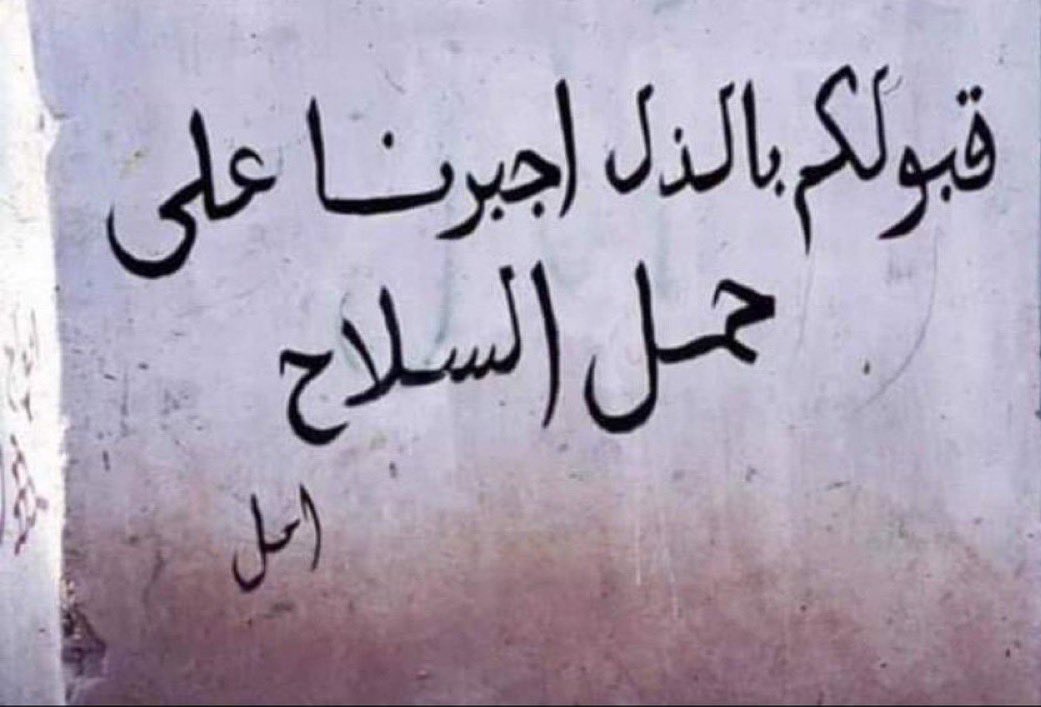 قبولكم بالذل اجبرنا على
حمل السلاح
امل